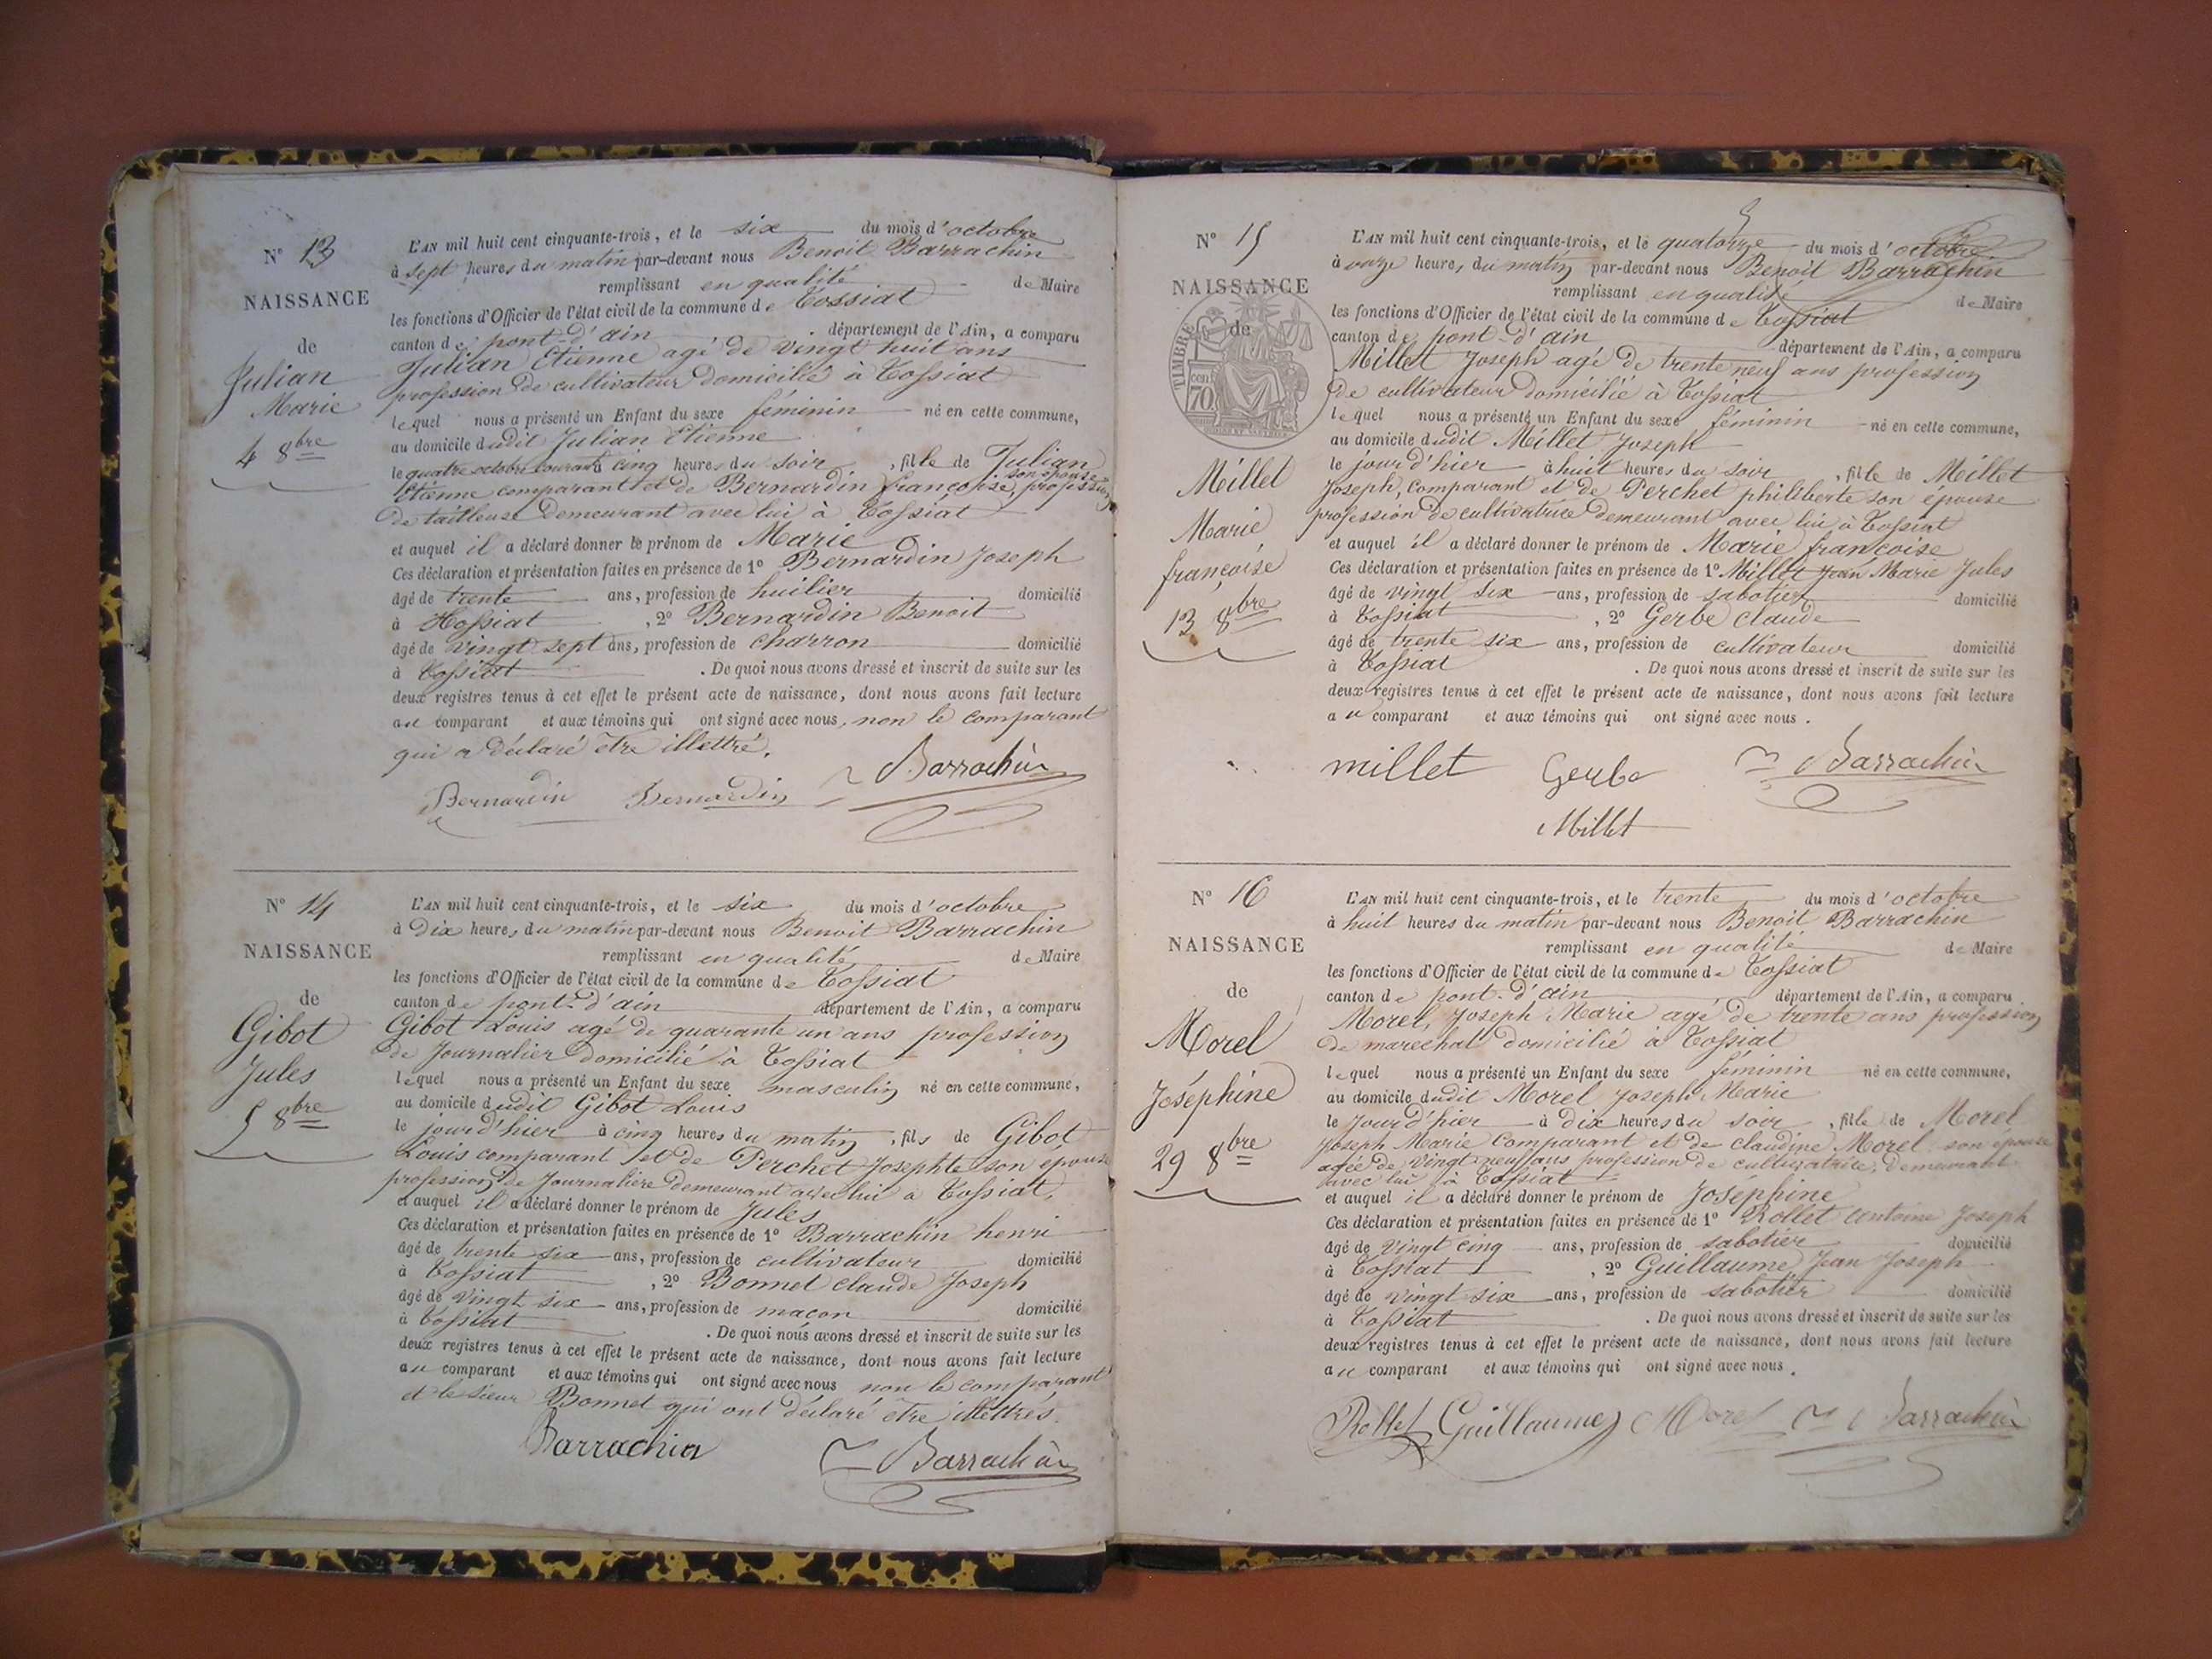 N° 13
NAISSANCE
de
Julian
Marie
4 8bre
L'AN mil huit cent cinquante-trois, et le six du mois d'octobre
à sept heures du matin par-devant nous Benoit Barrachin
remplissant en qualité de Maire
les fonctions d'Officier de l'état civil de la commune de Tossiat
canton de pont-d'ain département de l'Ain, a comparu
Julian Etienne agé de vingt huit ans
profession de cultivateur domicilié à Tossiat
lequel nous a présenté un Enfant du sexe féminin né en cette commune,
au domicile dudit Julian Etienne
le quatre octobre courant à cinq heures du soir, fille de Julian
Etienne comparant et de Bernardin françoise, son épouse profession
de tailleuse demeurant avec lui à Tossiat
et auquel il a déclaré donner le prénom de Marie
Ces déclaration et présentation faites en présence de 1° Bernardin Joseph
âgé de trente ans, profession de huilier domicilié
à Tossiat, 2° Bernardin Benoit
âgé de vingt sept ans, profession de charron domicilié
à Tossiat. De quoi nous avons dressé et inscrit de suite sur les
deux registres tenus à cet effet le présent acte de naissance, dont nous avons fait lecture
au comparant et aux témoins qui ont signé avec nous, non le comparant
qui a déclaré être illettré.
Bernardin Bernardin Barrachin
N° 14
NAISSANCE
de
Gibot
Jules
5 8bre
L'AN mil huit cent cinquante-trois, et le six du mois d'octobre
à Dix heures du matin par-devant nous Benoit Barrachin
remplissant en qualité de Maire
les fonctions d'Officier de l'état civil de la commune de Tossiat
canton de pont-d'ain département de l'Ain, a comparu
Gibot Louis agé de quarante un ans profession
de Journalier domicilié à Tossiat
lequel nous a présenté un Enfant du sexe masculin né en cette commune,
au domicile dudit Gibot Louis
le jour d'hier à cinq heures du matin, fils de Gibot
Louis comparant et de Perchet Josephte son épouse
profession de Journalière demeurant avec lui à Tossiat,
et auquel il a déclaré donner le prénom de Jules
Ces déclaration et présentation faites en présence de 1° Barrachin henri
âgé de trente six ans, profession de cultivateur domicilié
à Tossiat, 2° Bonnet claude Joseph
âgé de vingt six ans, profession de maçon domicilié
à Tossiat. De quoi nous avons dressé et inscrit de suite sur les
deux registres tenus à cet effet le présent acte de naissance, dont nous avons fait lecture
au comparant et aux témoins qui ont signé avec nous non le comparant
et le sieur Bonnet qui ont déclaré être illettrés.
Barrachin Barrachin
N° 15
NAISSANCE
de
TIMBRE
cen
70
Millet
Marie
françoise
13 8bre
L'AN mil huit cent cinquante-trois, et le quatorze du mois d'octobre
à onze heures du matin par-devant nous Benoit Barrachin
remplissant en qualité de Maire
les fonctions d'Officier de l'état civil de la commune de Tossiat
canton de pont-d'ain département de l'Ain, a comparu
Millet Joseph agé de trente neuf ans profession
de cultivateur domicilié à Tossiat
lequel nous a présenté un Enfant du sexe féminin né en cette commune,
au domicile dudit Millet Joseph
le jour d'hier à huit heures du soir, fille de Millet
Joseph, comparant et de Perchet philiberte son épouse
profession de cultivatrice demeurant avec lui à Tossiat
et auquel il a déclaré donner le prénom de Marie françoise
Ces déclaration et présentation faites en présence de 1° Millet Jean Marie Jules
âgé de vingt six ans, profession de sabotier domicilié
à Tossiat, 2° Gerbe claude
âgé de trente six ans, profession de cultivateur domicilié
à Tossiat. De quoi nous avons dressé et inscrit de suite sur les
deux registres tenus à cet effet le présent acte de naissance, dont nous avons fait lecture
au comparant et aux témoins qui ont signé avec nous.
millet Gerbe Barrachin
Millet
N° 16
NAISSANCE
de
Morel
Joséphine
29 8bre
L'AN mil huit cent cinquante-trois, et le trente du mois d'octobre
à huit heures du matin par-devant nous Benoit Barrachin
remplissant en qualité de Maire
les fonctions d'Officier de l'état civil de la commune de Tossiat
canton de pont-d'ain département de l'Ain, a comparu
Morel, Joseph Marie agé de trente ans profession
de marechal domicilié à Tossiat
lequel nous a présenté un Enfant du sexe féminin né en cette commune,
au domicile dudit Morel Joseph Marie
le Jour d'hier à dix heures du soir, fille de Morel
Joseph Marie comparant et de claudine Morel son épouse
agée de vingt neuf ans profession de cultivatrice, demeurant
avec lui à Tossiat
et auquel il a déclaré donner le prénom de Joséphine
Ces déclaration et présentation faites en présence de 1° Rollet antoine Joseph
âgé de vingt cinq ans, profession de sabotier domicilié
à Tossiat, 2° Guillaume Jean Joseph
âgé de vingt six ans, profession de sabotier domicilié
à Tossiat. De quoi nous avons dressé et inscrit de suite sur les
deux registres tenus à cet effet le présent acte de naissance, dont nous avons fait lecture
au comparant et aux témoins qui ont signé avec nous.
Rollet Guillaume Morel Barrachin